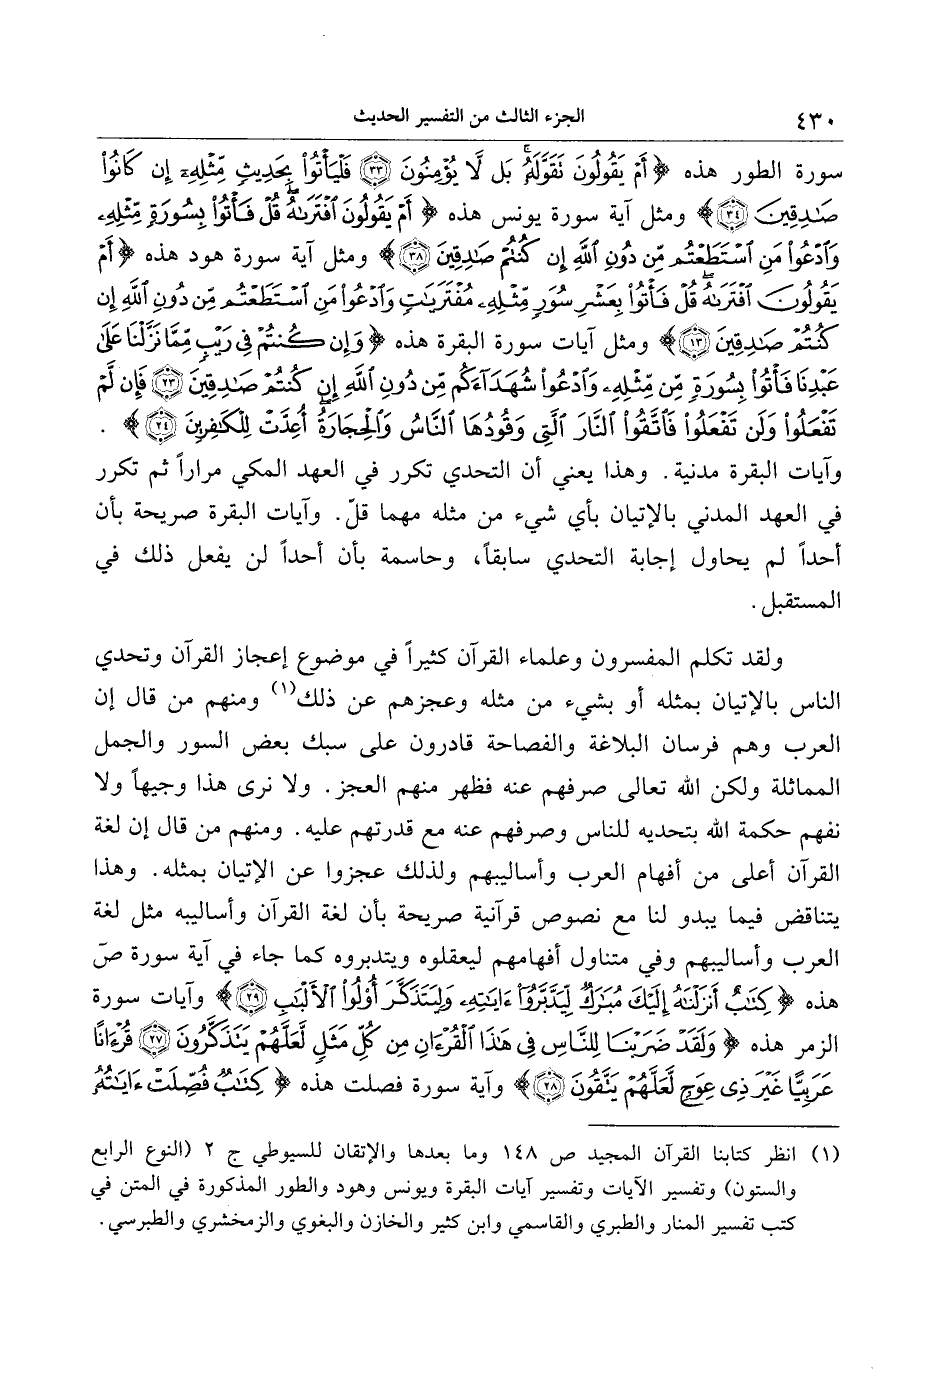 ٤٣٠ الجزء الثالث من التفسير الحديث
سورة الطور هذه ﴿ أَمْ يَقُولُونَ تَقَوَّلَهُۥ بَل لَّا يُؤْمِنُونَ ٣٣ فَلْيَأْتُوا۟ بِحَدِيثٍ مِّثْلِهِۦٓ إِن كَانُوا۟
صَـٰدِقِينَ ٣٤ ﴾ ومثل آية سورة يونس هذه ﴿ أَمْ يَقُولُونَ ٱفْتَرَىٰهُ ۖ قُلْ فَأْتُوا۟ بِسُورَةٍ مِّثْلِهِۦ
وَٱدْعُوا۟ مَنِ ٱسْتَطَعْتُم مِّن دُونِ ٱللَّهِ إِن كُنتُمْ صَـٰدِقِينَ ٣٨ ﴾ ومثل آية سورة هود هذه ﴿ أَمْ
يَقُولُونَ ٱفْتَرَىٰهُ ۖ قُلْ فَأْتُوا۟ بِعَشْرِ سُوَرٍ مِّثْلِهِۦ مُفْتَرَيَـٰتٍ وَٱدْعُوا۟ مَنِ ٱسْتَطَعْتُم مِّن دُونِ ٱللَّهِ إِن
كُنتُمْ صَـٰدِقِينَ ١٣ ﴾ ومثل آيات سورة البقرة هذه ﴿ وَإِن كُنتُمْ فِى رَيْبٍ مِّمَّا نَزَّلْنَا عَلَىٰ
عَبْدِنَا فَأْتُوا۟ بِسُورَةٍ مِّن مِّثْلِهِۦ وَٱدْعُوا۟ شُهَدَآءَكُم مِّن دُونِ ٱللَّهِ إِن كُنتُمْ صَـٰدِقِينَ ٢٣ فَإِن لَّمْ
تَفْعَلُوا۟ وَلَن تَفْعَلُوا۟ فَٱتَّقُوا۟ ٱلنَّارَ ٱلَّتِى وَقُودُهَا ٱلنَّاسُ وَٱلْحِجَارَةُ ۖ أُعِدَّتْ لِلْكَـٰفِرِينَ ٢٤ ﴾ .
وآيات البقرة مدنية. وهذا يعني أن التحدي تكرر في العهد المكي مراراً ثم تكرر
في العهد المدني بالإتيان بأي شيء من مثله مهما قلّ. وآيات البقرة صريحة بأن
أحداً لم يحاول إجابة التحدي سابقاً، وحاسمة بأن أحداً لن يفعل ذلك في
المستقبل.
ولقد تكلم المفسرون وعلماء القرآن كثيراً في موضوع إعجاز القرآن وتحدي
الناس بالإتيان بمثله أو بشيء من مثله وعجزهم عن ذلك(١) ومنهم من قال إن
العرب وهم فرسان البلاغة والفصاحة قادرون على سبك بعض السور والجمل
المماثلة ولكن الله تعالى صرفهم عنه فظهر منهم العجز. ولا نرى هذا وجيهاً ولا
نفهم حكمة الله بتحديه للناس وصرفهم عنه مع قدرتهم عليه. ومنهم من قال إن لغة
القرآن أعلى من أفهام العرب وأساليبهم ولذلك عجزوا عن الإتيان بمثله. وهذا
يتناقض فيما يبدو لنا مع نصوص قرآنية صريحة بأن لغة القرآن وأساليبه مثل لغة
العرب وأساليبهم وفي متناول أفهامهم ليعقلوه ويتدبروه كما جاء في آية سورة صٓ
هذه ﴿ كِتَـٰبٌ أَنزَلْنَـٰهُ إِلَيْكَ مُبَـٰرَكٌ لِّيَدَّبَّرُوٓا۟ ءَايَـٰتِهِۦ وَلِيَتَذَكَّرَ أُو۟لُوا۟ ٱلْأَلْبَـٰبِ ٢٩ ﴾ وآيات سورة
الزمر هذه ﴿ وَلَقَدْ ضَرَبْنَا لِلنَّاسِ فِى هَـٰذَا ٱلْقُرْءَانِ مِن كُلِّ مَثَلٍ لَّعَلَّهُمْ يَتَذَكَّرُونَ ٢٧ قُرْءَانًا
عَرَبِيًّا غَيْرَ ذِى عِوَجٍ لَّعَلَّهُمْ يَتَّقُونَ ٢٨ ﴾ وآية سورة فصلت هذه ﴿ كِتَـٰبٌ فُصِّلَتْ ءَايَـٰتُهُۥ
(١) انظر كتابنا القرآن المجيد ص ١٤٨ وما بعدها والإتقان للسيوطي ج ٢ (النوع الرابع
والستون) وتفسير الآيات وتفسير آيات البقرة ويونس وهود والطور المذكورة في المتن في
كتب تفسير المنار والطبري والقاسمي وابن كثير والخازن والبغوي والزمخشري والطبرسي.